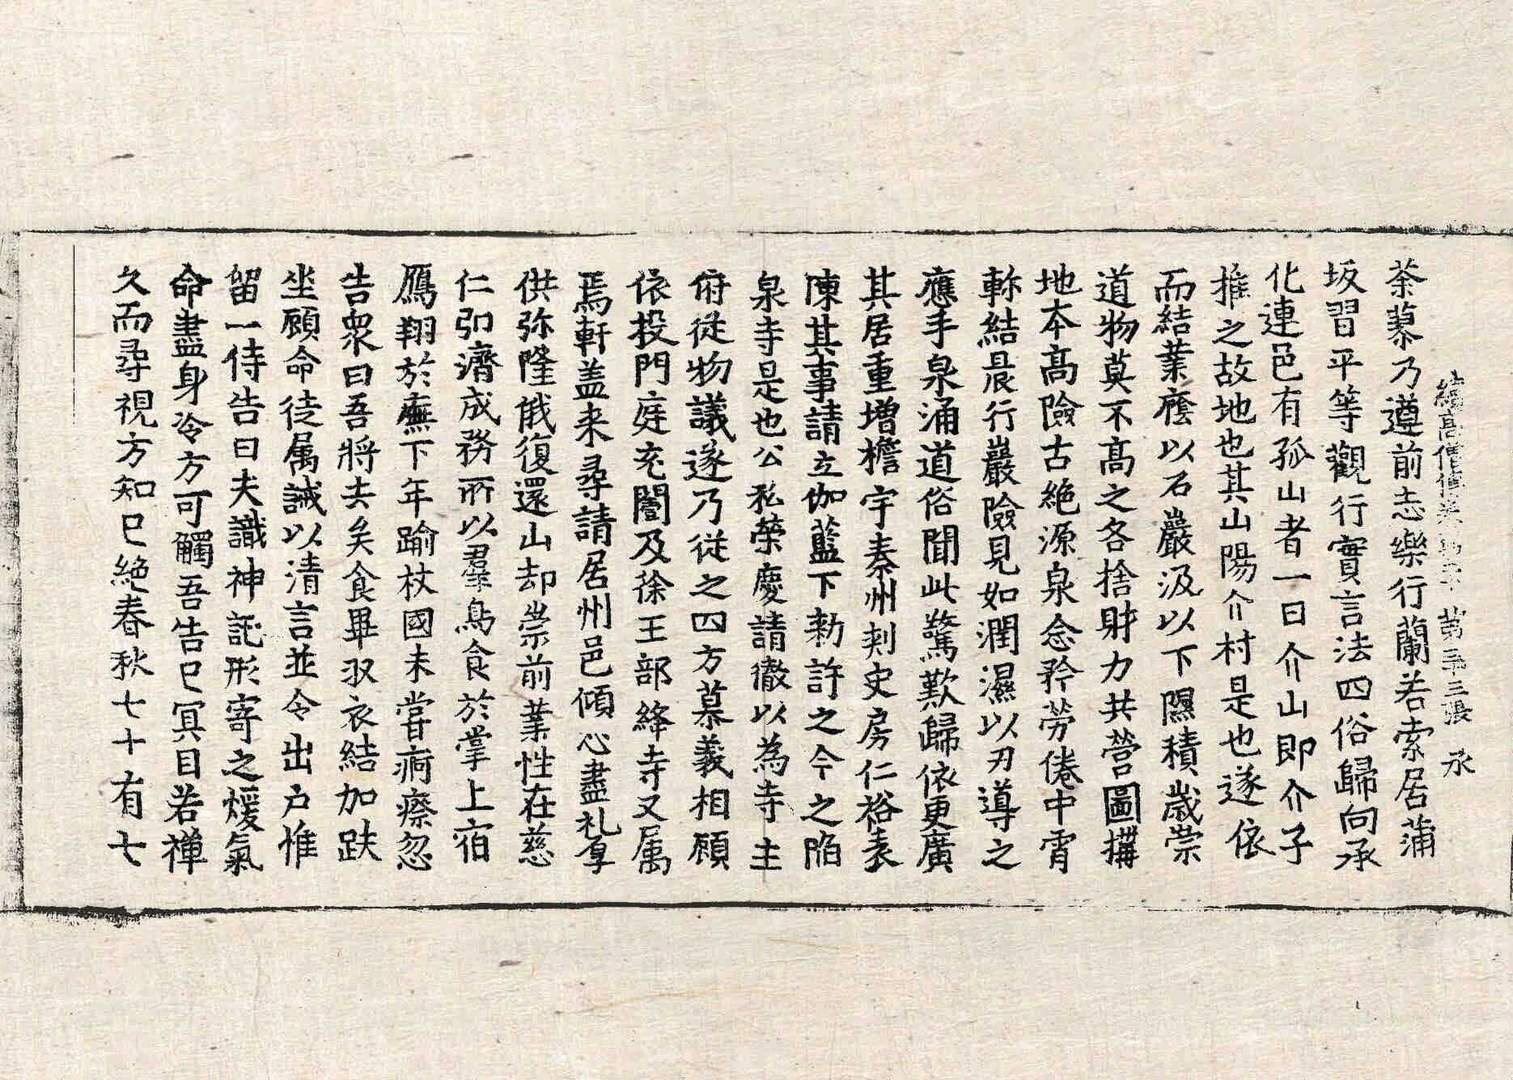 續高僧傳卷第二十 第三十三張 承
荼藜乃遵前志樂行蘭若索居蒲
坂習平等觀行實言法四俗歸向承
化連邑有孤山者一曰介山即介子
推之故地也其山陽介村是也遂依
而結業庵以石巖汲以下隰積歲崇
道物莫不高之各捨財力共營圖構
地本高險古絕源泉念矜勞倦中霄
軫結晨行巖險見如潤濕以刃導之
應手泉涌道俗聞此驚歎歸依更廣
其居重增檐宇秦州刾史房仁裕表
陳其事請立伽藍下勑許之今之陷
泉寺是也公私榮慶請徹以為寺主
俯從物議遂乃從之四方慕義相顧
依投門庭充闔及徐王部絳寺又属
焉軒盖来尋請居州邑傾心盡礼厚
供弥隆俄復還山却崇前業性在慈
仁弘濟成務所以羣鳥食於掌上宿
鴈翔於廡下年踰杖國未甞痾瘵忽
告衆曰吾將去矣食畢取衣結加趺
坐顧命徒属誡以清言並令出户惟
留一侍告曰夫識神託形寄之煖氣
命盡身冷方可觸吾告已冥目若禅
久而尋視方知已絶春秋七十有七